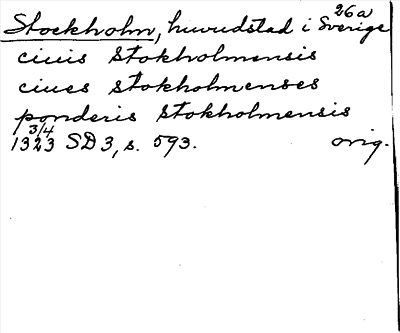 26a
Stockholm, huvudstad i Sverige
ciuis Stokholmensis
ciues stokholmenses
ponderis Stokholmensis
3/4
1323 SD 3, s. 593. orig.